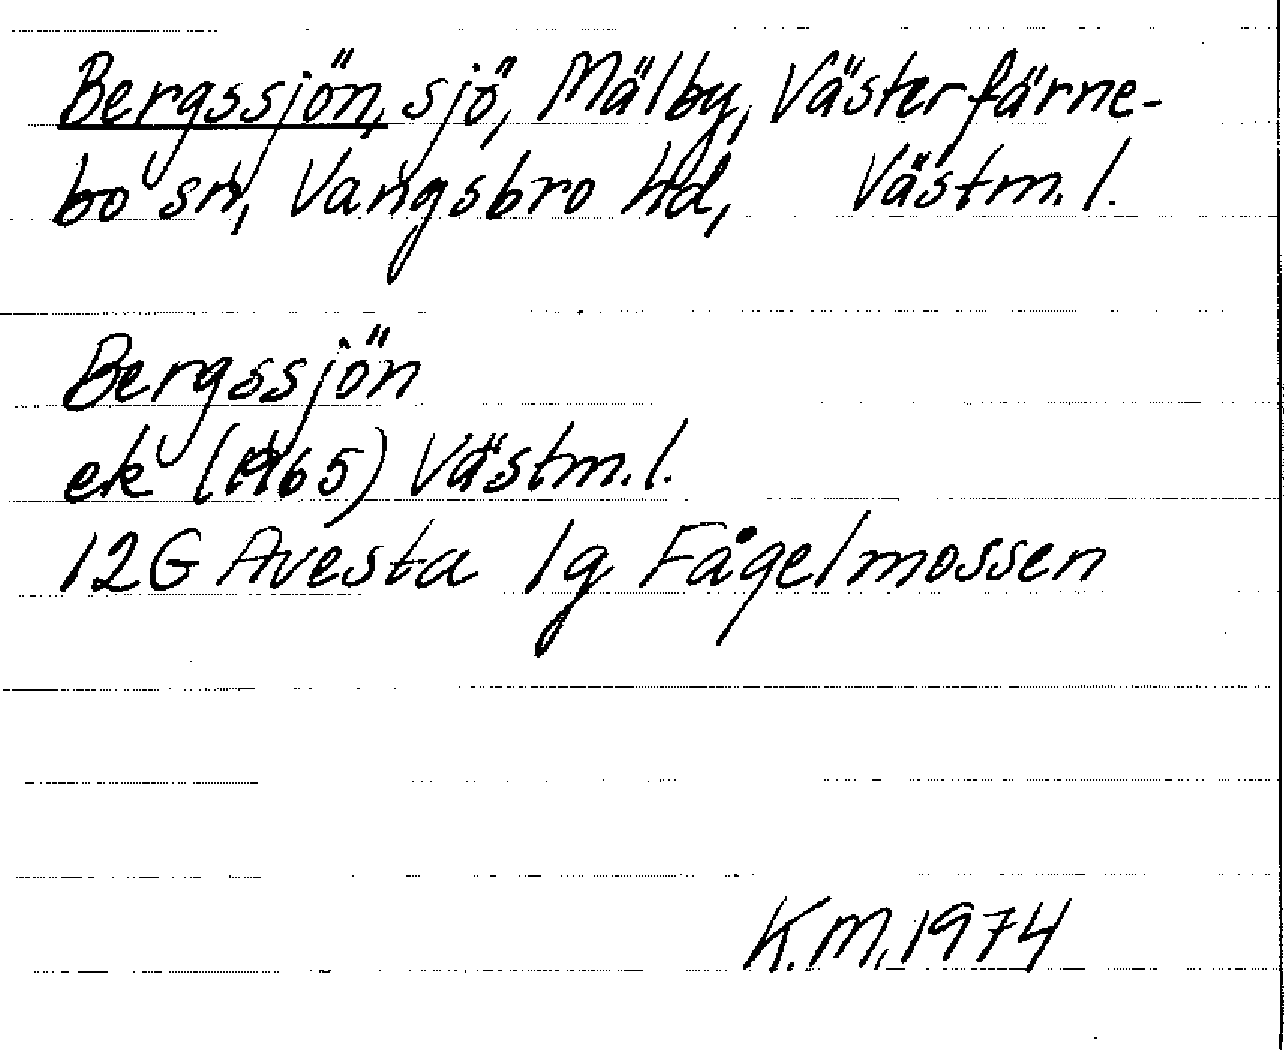 Bergssjön, sjö, Mälby, Västerfärne-
bo sn, Vangsbro hd, Västm. l.
Bergssjön
ek (1965) Västm. l.
12G Avesta 1g Fågelmossen
K.M. 1974